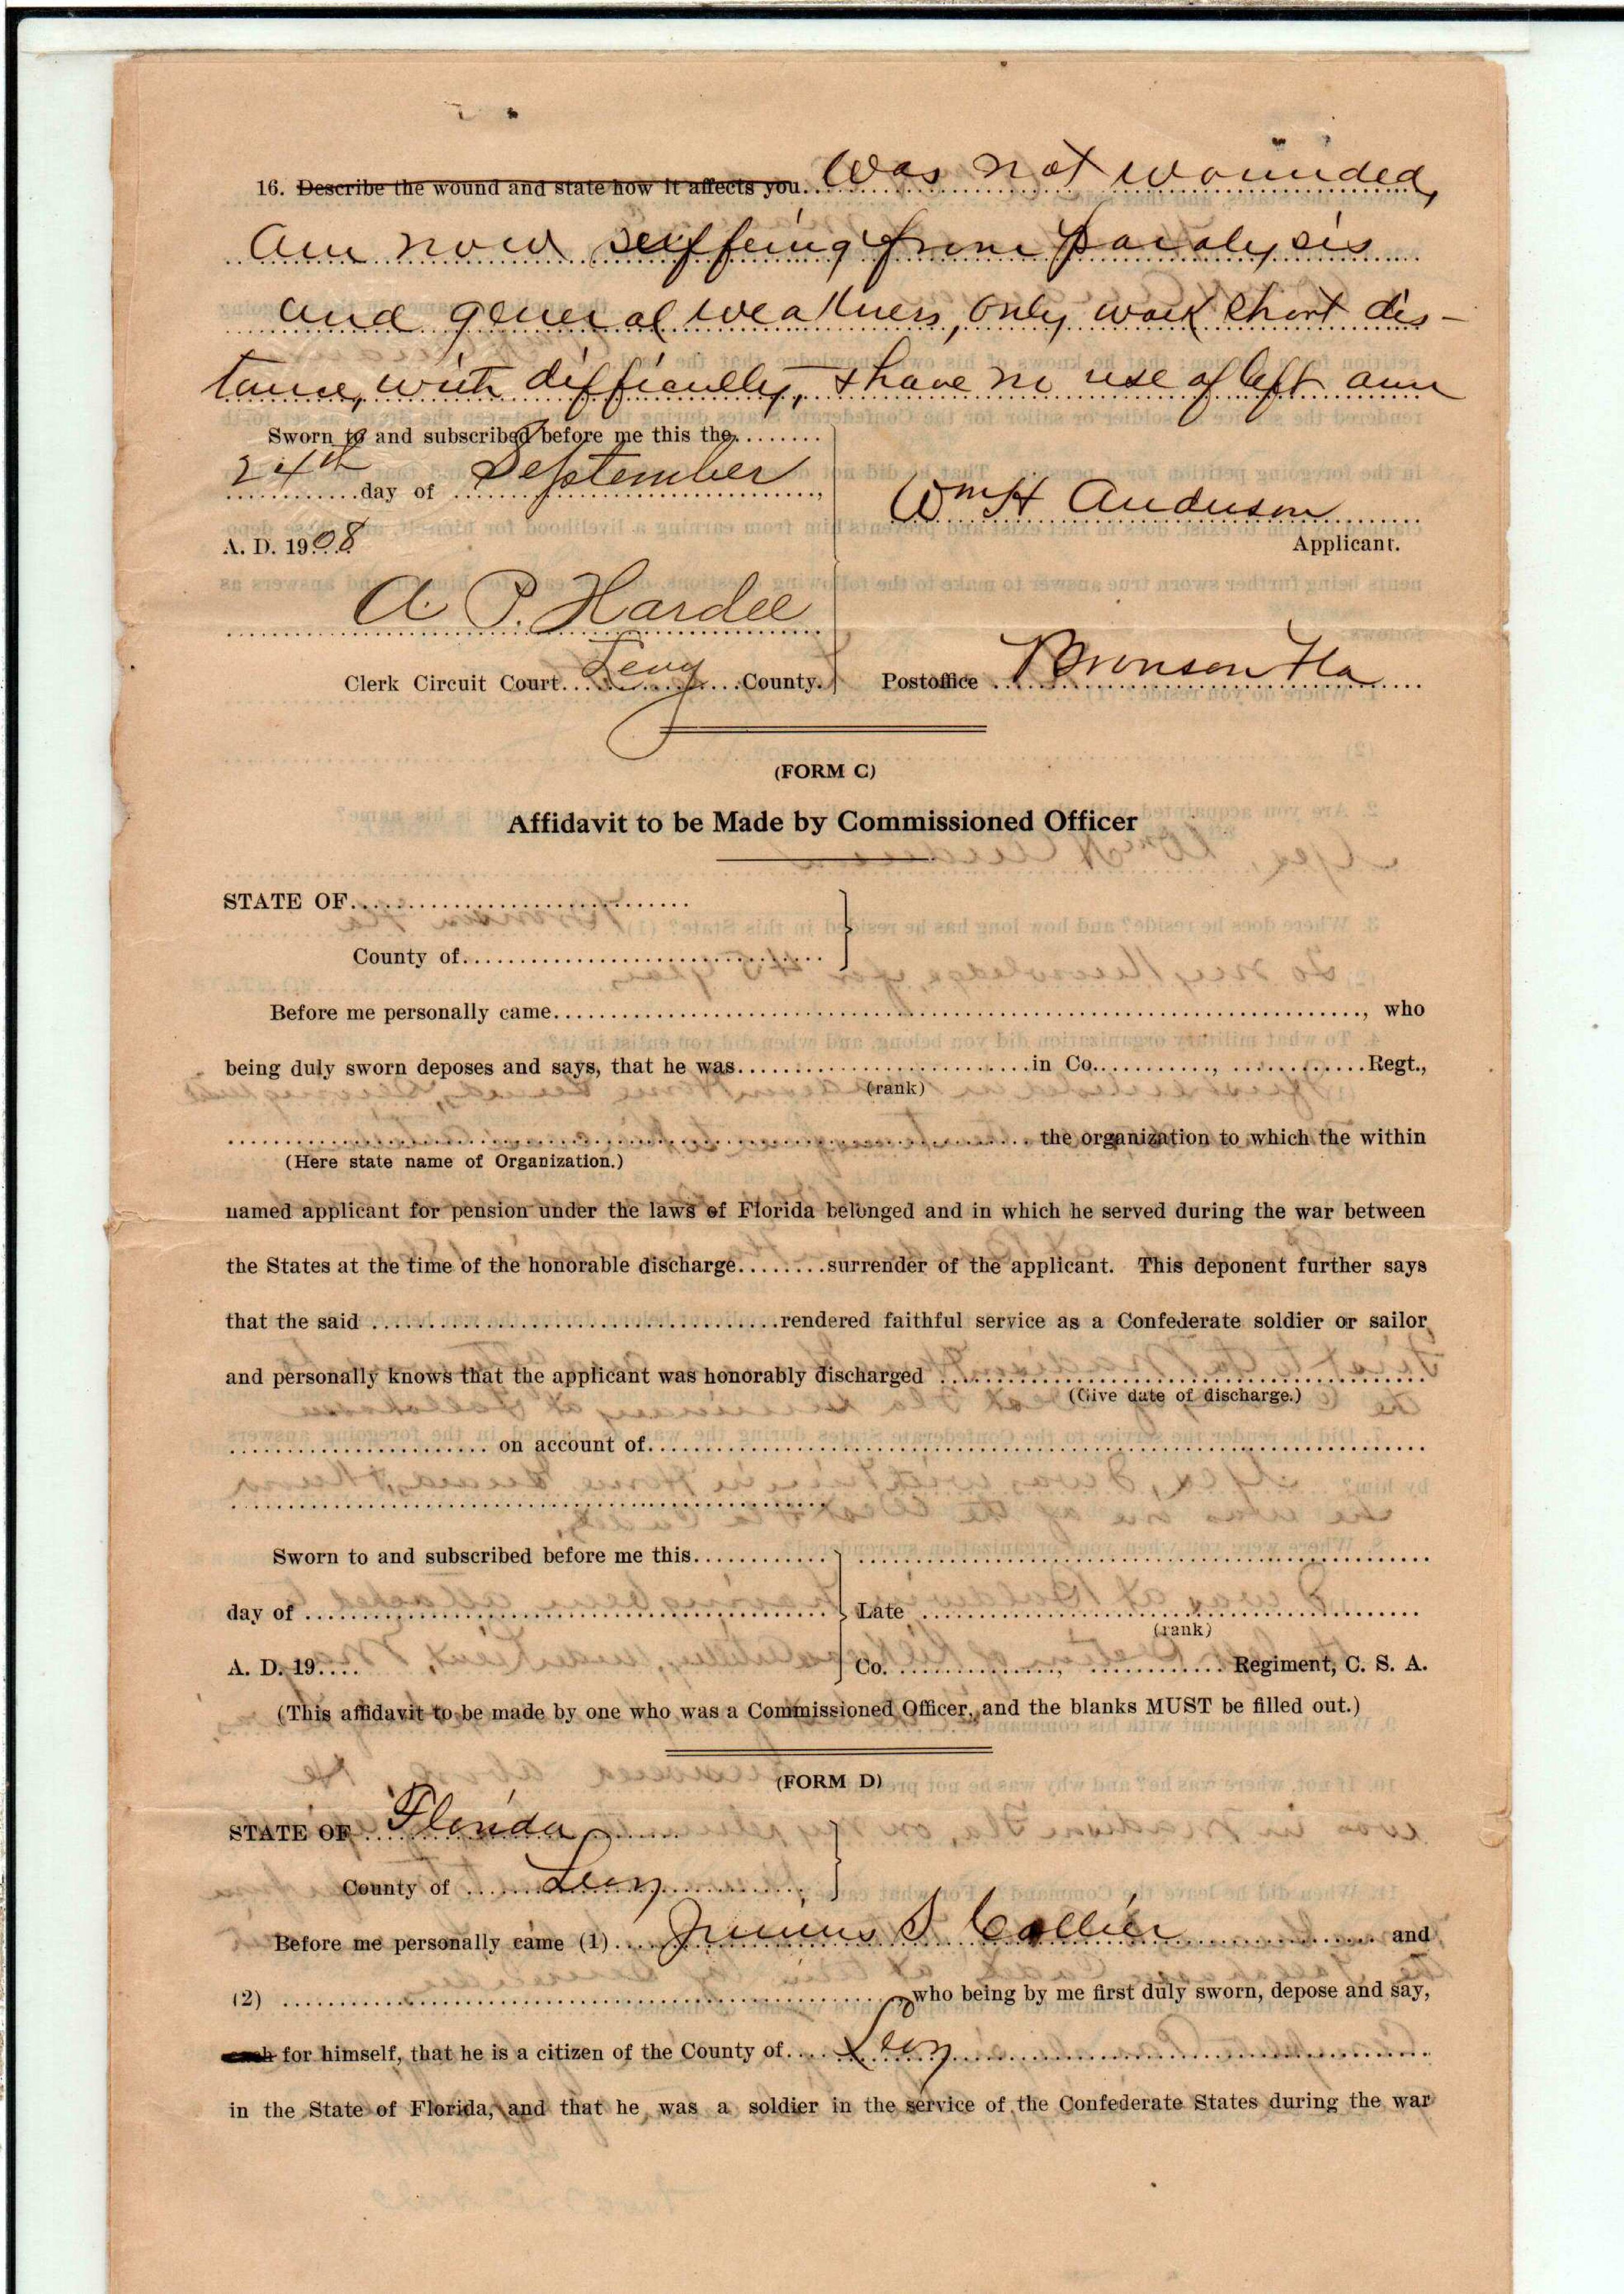 16. Describe the wound and state how it affects you. Was not wounded,
am now suffeing from Paralysis
and general weakness, only walk short dis-
tance, with difficulty, & have no use of left arm
Sworn to and subscribed before me this the
24th day of September
A. D. 1908
Wm H Anderson
Applicant.
A. P. Hardee
Clerk Circuit Court Levy County. Postoffice Bronson Fla
(FORM C)
Affidavit to be Made by Commissioned Officer
STATE OF
County of
Before me personally came, who
being duly sworn deposes and says, that he was in Co., Regt.,
(rank)
the organization to which the within
(Here state name of Organization.)
named applicant for pension under the laws of Florida belonged and in which he served during the war between
the States at the time of the honorable discharge surrender of the applicant. This deponent further says
that the said rendered faithful service as a Confederate soldier or sailor
and personally knows that the applicant was honorably discharged
(Give date of discharge.)
on account of
Sworn to and subscribed before me this
day of Late
(rank)
A. D. 19 Co. , Regiment, C. S. A.
(This affidavit to be made by one who was a Commissioned Officer, and the blanks MUST be filled out.)
(FORM D)
STATE OF Florida
County of Levy
Before me personally came (1) Junius S Collier and
(2) , who being by me first duly sworn, depose and say,
each for himself, that he is a citizen of the County of Levy
in the State of Florida, and that he was a soldier in the service of the Confederate States during the war